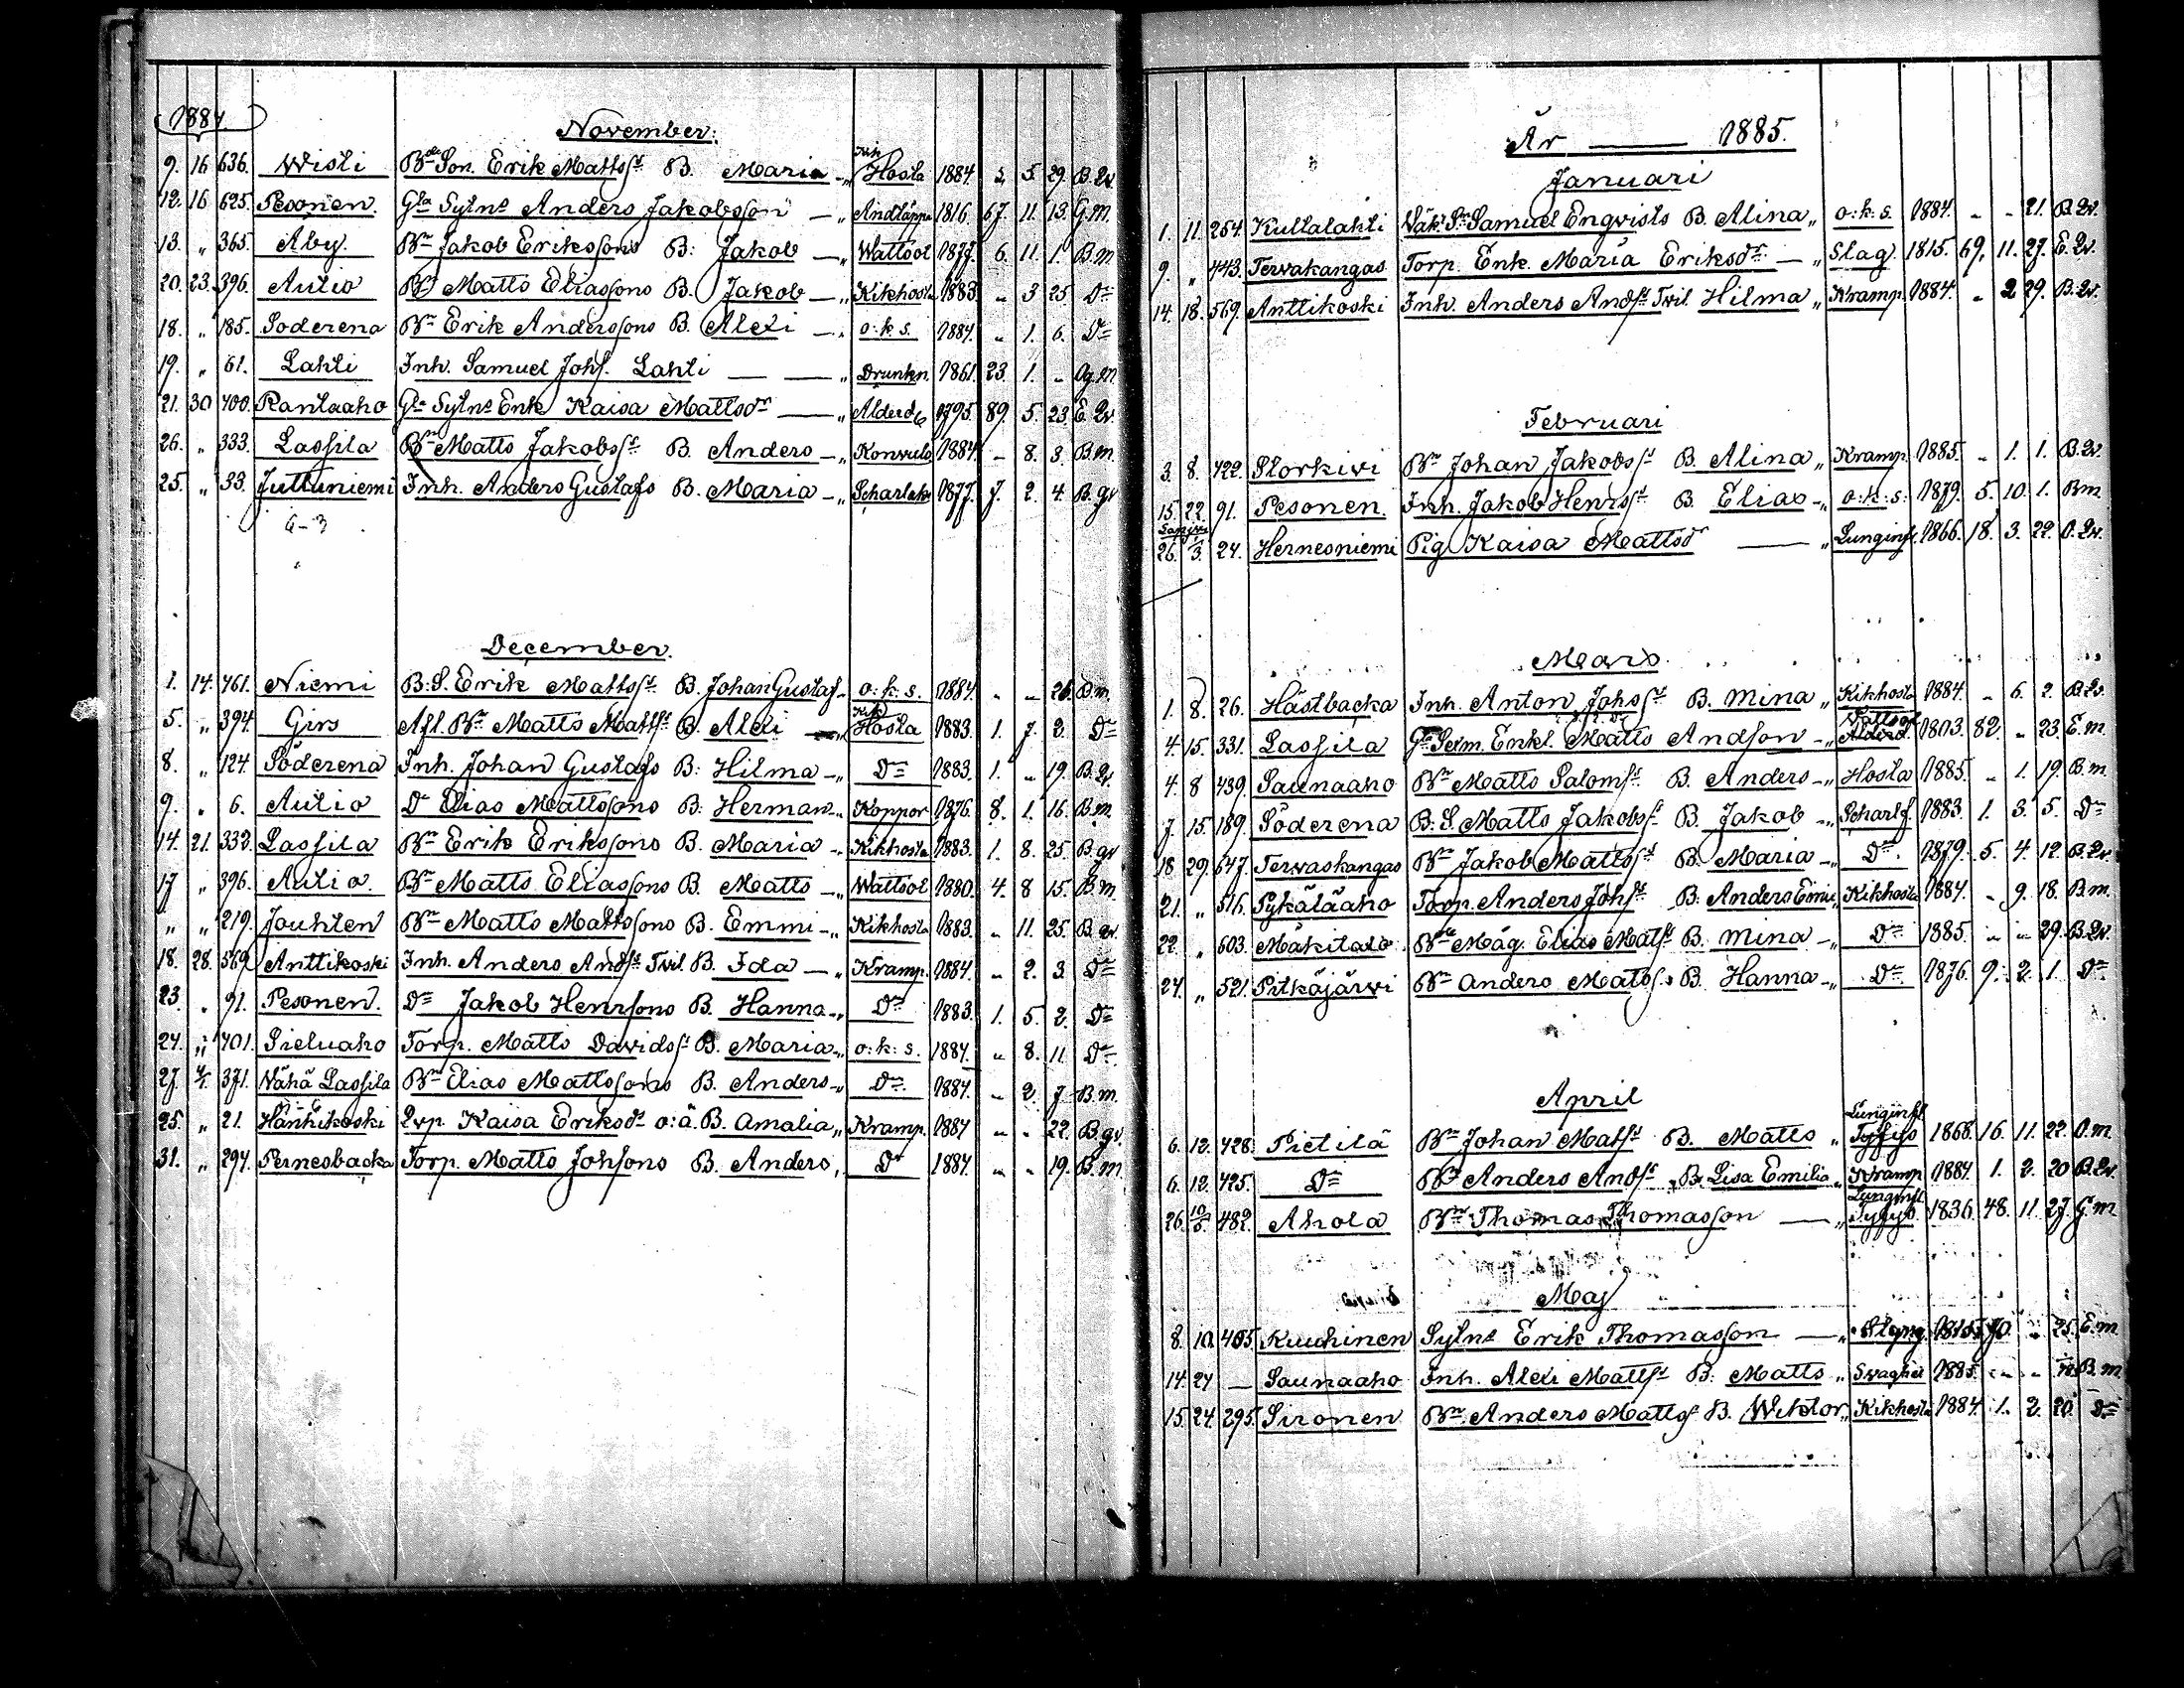 1884.
November:
9. 16 636. Wisti Bde Son. Erik Mattsst B. Maria „ Kik Hosta 1884. 5. 29. B. Qv.
12. 16 625. Pesonen. Gla Sytns Anders Jakobsson — „ Andtäppa 1816. 67. 11. 13. G. m.
13. „ 365. Åby. Bn Jakob Erikssons B: Jakob — „ Wattsot 1877. 6. 11. 1. B. m.
20. 23. 396. Autio Bn Matts Eliassons B. Jakob — „ Kikhosta 1883. „ 3 25. Do
18. „ 185. Soderena Bn Erik Anderssons B. Alexi — „ o: k. s. 1884. „ 1. 6. Do
19. „ 61. Lahti Inh. Samuel Johs. Lahti — — „ Drunkn. 1861. 23. 1. „ Og. m.
21. 30 400. Rantaaho Gla Sytns Enk Kaisa Mattsdr — „ Ålderd. 1795. 89. 5. 23. E. Qv.
26. „ 333. Lassila Bn Matts Jakobsst B. Anders — „ Konvuls 1884. „ 8. 3. B. m.
25. „ 33. Juttuniemi Inh. Anders Gustafs B. Maria — „ Scharlak. 1877. 7. 2. 4. B. qv
6-3
December.
1. 14. 461. Niemi B. S. Erik Mattsst B. Johan Gustaf „ o: k. s. 1884. „ „ 26. B. m.
5. „ 394. Girs Afl. Bn Matts Mattsst B. Alexi — „ Kik Hosta 1883. 1. 7. 2. Do
8. „ 124. Söderena Inh. Johan Gustafs B: Hilma — „ Do 1883. 1. „ 19. B. Qv.
9. „ 6. Autio Do Elias Mattssons B: Herman „ Koppor 1876. 8. 1. 16. B. m.
14. 21. 332. Lassila Bn Erik Erikssons B. Maria — „ Kikhosta 1883. 1. 8. 25. B. qv
17 „ 396. Autio. Bn Matts Eliassons B. Matts — „ Wattsot 1880. 4. 8 15. B. m.
„ „ 219. Jouhten Bn Matts Mattssons B. Emmi — „ Kikhosta 1883. „ 11. 25. B. qv.
18. 28. 569. Anttikoski Inh. Anders Andsst Tvil. B. Ida — „ Kramp. 1884. „ 2. 3. Do
23. „ 91. Pesonen. Do Jakob Henrssons B. Hanna „ Do 1883. 1. 5. 2. Do
24. „ 401. Sieluaho Torp. Matts Davidsst B. Maria „ o: k: s. 1884. „ 8. 11. Do
27. 4/1. 371. Nähä Lassila Bn Elias Mattssons B. Anders „ Do 1884. „ 2. 7 B. m.
25. „ 21. Hänhikoski Qvp. Kaisa Eriksdr o: ä. B. Amalia „ Kramp. 1884 „ „ 22. B. qv.
31. „ 294. Pernesbacka Torp. Matts Johssons B. Anders, „ Do 1884. „ „ 19. B. m.
År — 1885.
Januari
1. 11. 254. Kultalahti Samuel Engvists B. Alina „ o: k: s. 1884. „ „ 21. B. Qv.
9. „ 443. Tervakangas Torp. Enk. Maria Eriksdr — „ Slag 1815. 69. 11. 27. E. Qv.
14. 18. 569. Anttikoski Inh. Anders Andsst Tvil. Hilma „ Kramp. 1884. „ 2 29. B. Qv.
Februari
3. 8. 422. Storkivi Bn Johan Jakobsst B. Alina „ Kramp. 1885. „ 1. 1. B. Qv.
15. 22. 91. Pesonen. Inh. Jakob Henrsst B. Elias — „ o: k: s: 1879. 5. 10. 1. B m.
26. 1/3. 24. Hernesniemi Pig. Kaisa Mattsdr — „ Lunginfl. 1866. 18. 3. 22. O. Qv.
Mars.
1. 8. 26. Hästbacka Inh. Anton Johsst B. Mina „ Kikhosta 1884. „ 6. 2. B. Qv.
4. 15. 331. Lassila Matts Andson — „ Wattsot Ålderd. 1803. 82. „ 23. E. m.
4. 8 439. Saunaaho Bn Matts Salomsst B. Anders — „ Hosta 1885. „ 1. 19. B. m.
7. 15. 189. Söderena B: S. Matts Jakobsst B. Jakob — „ Scharlf. 1883. 1. 3. 5. Do
18 29. 647. Tervaskangas Bn Jakob Mattsst B. Maria — „ Do. 1879. 5. 4. 12. B. Qv
21. „ 516. Pykäläaho Torp. Anders Johsst B. Anders Emil „ Kikhosta 1884. „ 9. 18. B. m.
22. „ 603. Mäkitalo. Bde Måg. Elias Matsst B. Mina — „ Do 1885. „ „ 29. B. Qv.
24. „ 521. Pitkäjärvi Bn Anders Mattss B. Hanna — „ Do 1876. 9. 2. 1. Do
April
6. 12. 428. Pietilä Bn Johan Matsst B. Matts „ Lunginfl. Tyfys 1868. 16. 11. 22. O. m.
6. 12. 425. Do Bn Anders Andsst B. Lisa Emilia „ Kramp 1884. 1. 2. 20 B. Qv.
26. 10/5. 482. Ahola Bn Thomas Thomasson — „ Lunginfl. Tyfys. 1836. 48. 11. 27. G. m
Maj
8. 10. 405. Kuuhinen Sytns Erik Thomasson — „ 25. E. m
14. 24 — Saunaaho Inh. Alexi Mattsst B. Matts „ Svaghet 1885. „ „ B. m.
15. 24. 295. Sironen Bn Anders Mattss B. Wiktor „ Kikhosta 1884. 1. 2. 20. Do